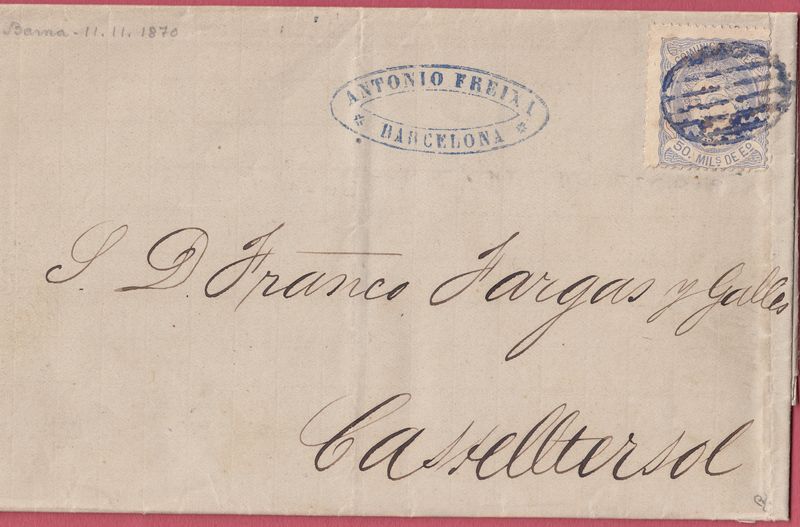 Barna - 11. 11. 1870
ANTONIO FREIXA
BARCELONA
COMUNICACIONES
50. MILS DE EO
S. D. Franco Fargas y Galles
Castelltersol